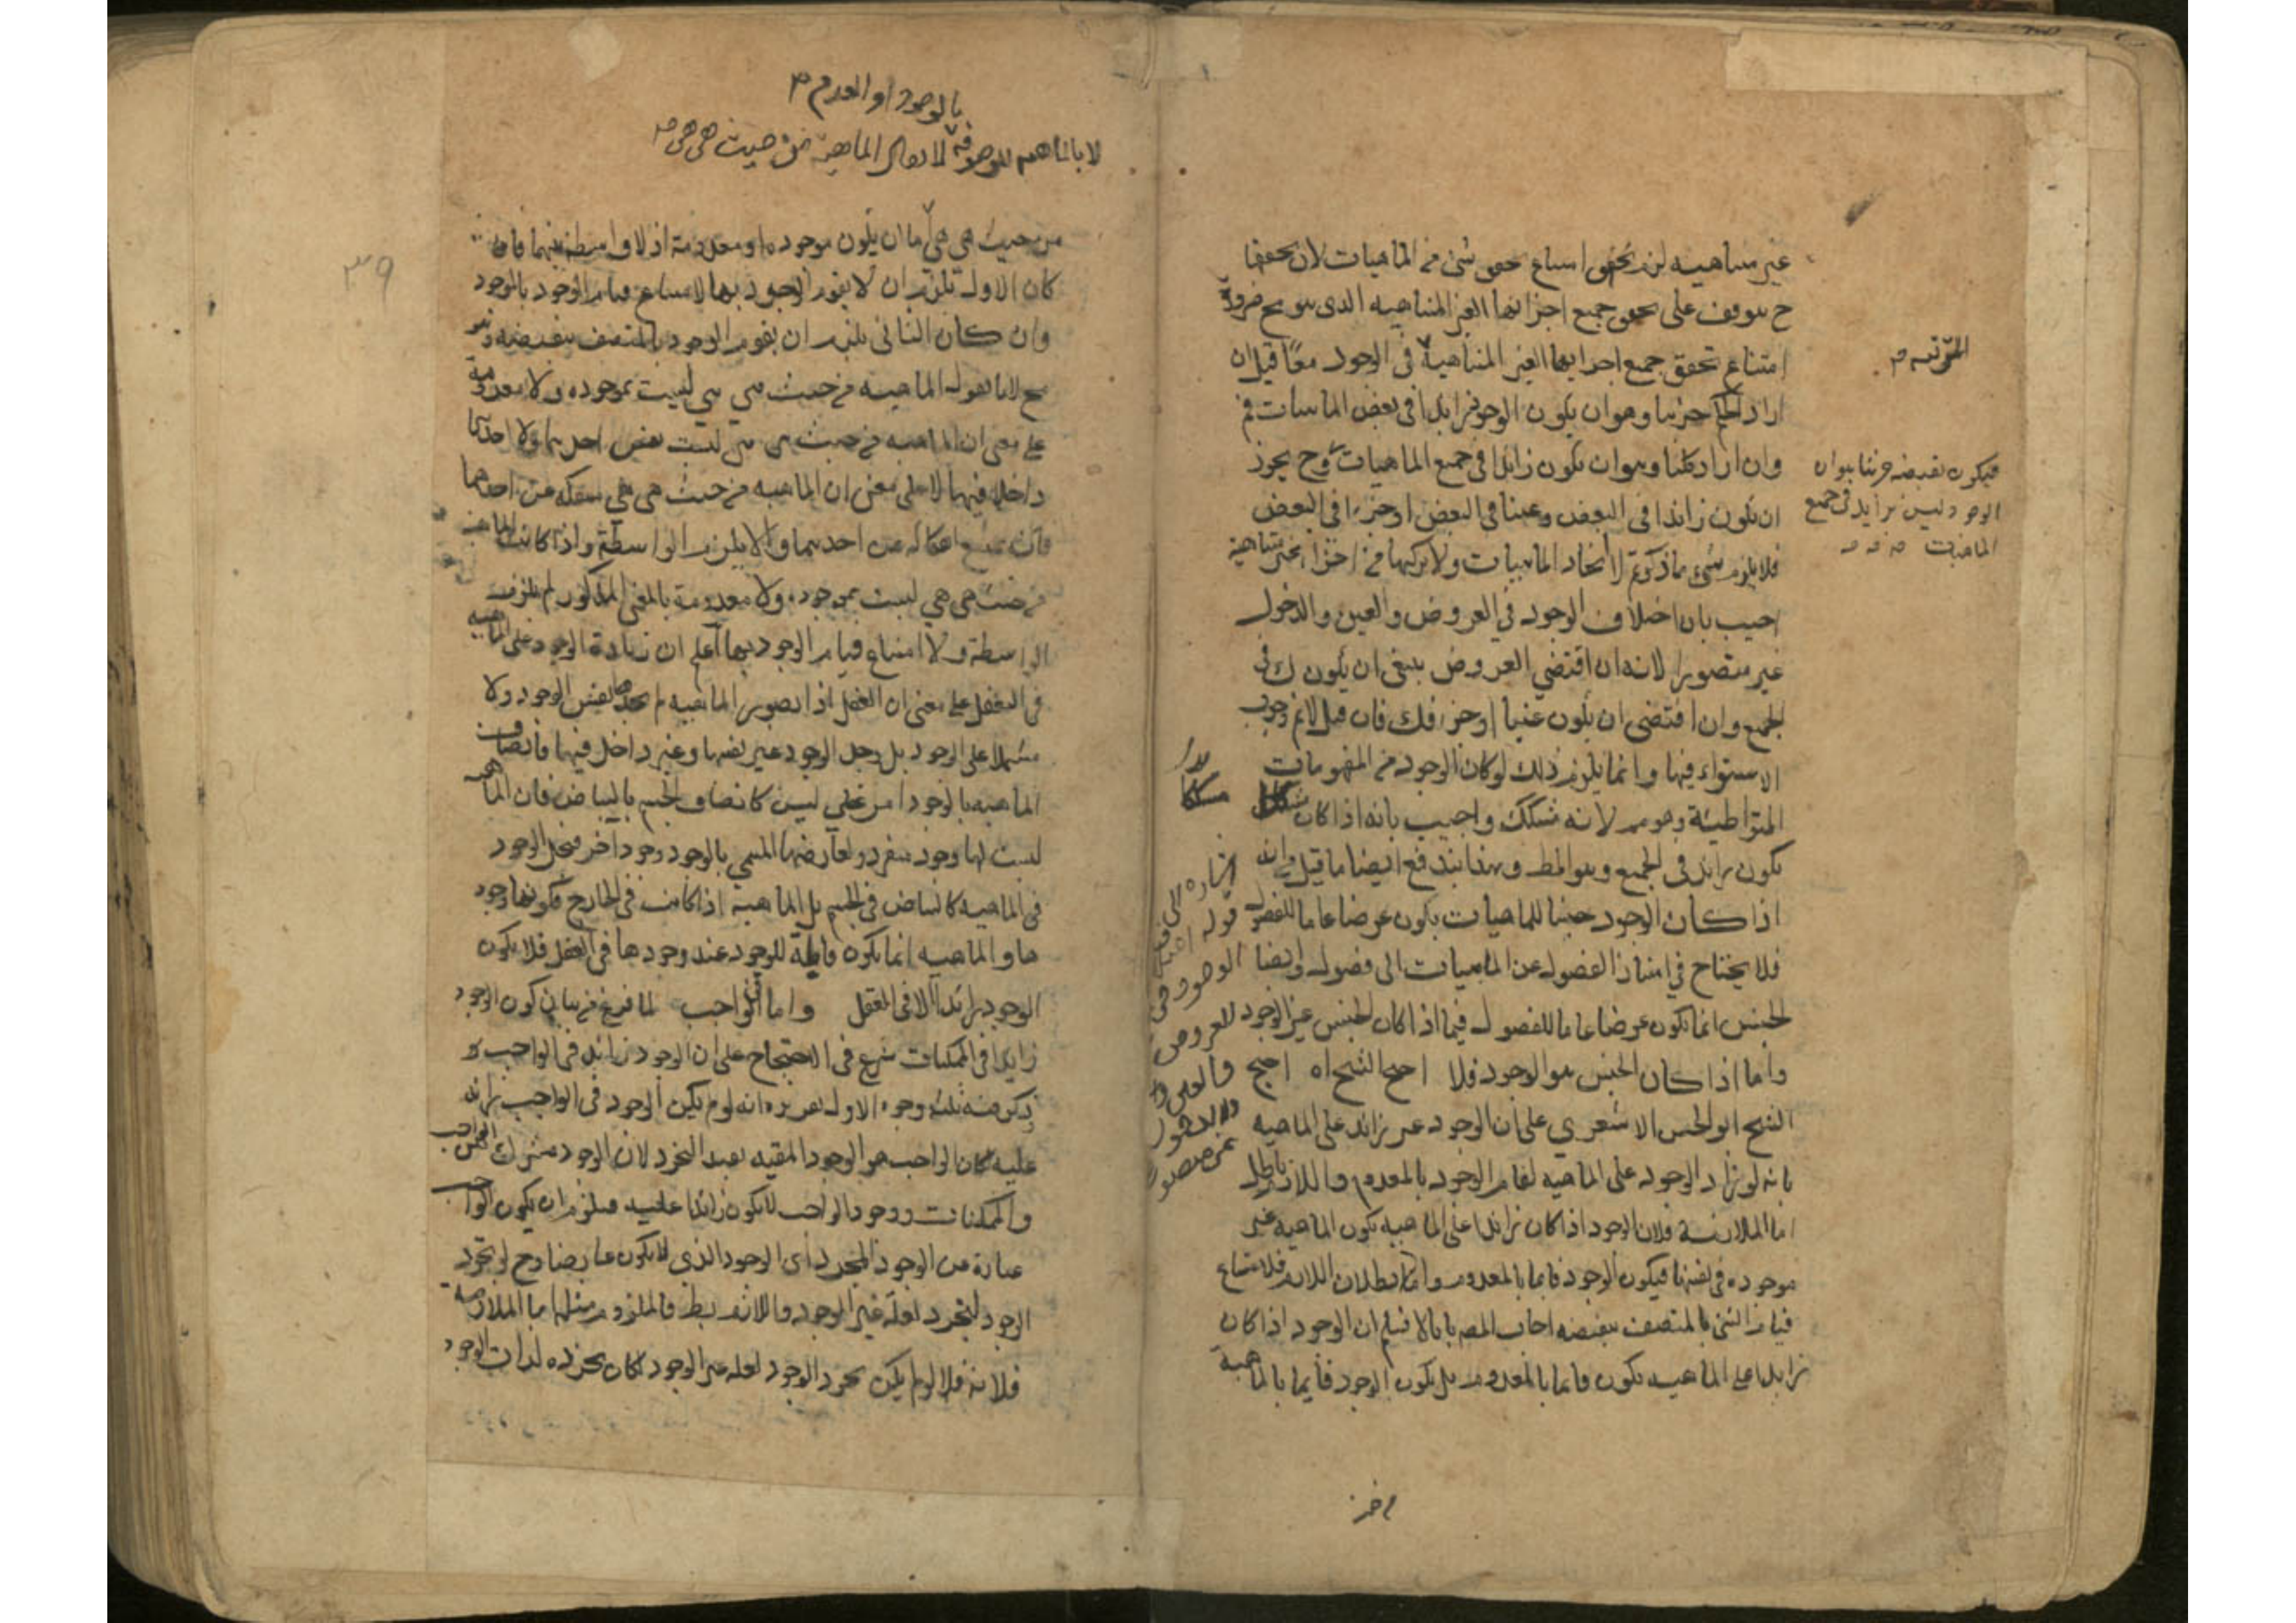 غير متناهيه لزم تحقق امتناع تحقق شئ من الماهيات لان تحققها
ح يتوقف على تحقق جميع اجزائها الغير المتناهيه الذى هو مح ضرورة
امتناع تحقق جميع اجزايها الغير المتناهية فى الوجود معًا قيل ان
المترتبه
اراد الحكم جزئيا وهو ان يكون الوجود زايدا فى بعض الماهيات فم
وان اراد كليا وهو ان يكون زايدا فى جميع الماهيات وح يجوز
فيكون نقيضه جزئيا هو ان
الوجود ليس بزايد فى جميع
الماهيات
ان يكون زائدا فى البعض وعينا فى البعض او جزءا فى البعض
فلا يلزم شئ مما ذكرتم لا اتحاد الماهيات ولا تركبها من اجزاء غير متناهية
اجيب بان اختلاف الوجود فى العروض والعين والدخول
غير متصور لانه ان اقتضي العروض ينبغى ان يكون ك فى
الجميع وان اقتضى ان يكون عينا او جزءا فك فان قيل لانم وجوب
الاستواء فيها وانما يلزم ذلك لو كان الوجود من المفهومات
المتواطيئة وهو مم لانه مشكك واجيب بانه اذا كان مشككا
يكون زائدا فى الجميع وهو المط وبهذا يندفع ايضا ما قيل وانه
اذا كان الوجود جنسا للماهيات يكون عرضا عاما للفصول
فلا يحتاج فى امتياز الفصول عن الماهيات الى فصول وايضا
الجنس انما يكون عرضا عاما للفصول فيما اذا كان الجنس غير الوجود
واما اذا كان الجنس هو الوجود فلا احتج الشيخ اه احتج
اشاره الى
قوله
الوجود فى
العروض
والعين
والدخول
غير متصور
الشيخ ابو الحسن الاشعري على ان الوجود غير زائد على الماهيه
بانه لو زاد الوجود على الماهيه لقام الوجود بالمعدوم واللازم باطل
اما الملازمة فلان الوجود اذا كان زائدا على الماهيه يكون الماهيه غير
موجوده فى نفسها فيكون الوجود قايما بالمعدوم واما بطلان اللازم فلامتناع
قيام الشئ بالمتصف بنقيضه اجاب المص بانا لا نسلم ان الوجود اذا كان
زايدا على الماهيه يكون قايما بالمعدوم بل يكون الوجود قايما بالماهية
بالوجود او العدم
من حيث هى هى
من حيث هى هى اما ان يكون موجوده او معدومة اذ لا واسطه بينهما فان
كان الاول يلزم ان لا يقوم الوجود بها لامتناع قيام الوجود بالموجود
وان كان الثانى يلزم ان يقوم الوجود بالمتصف بنقيضه وهو
مح لانا نقول الماهيه من حيث هي هي ليست بموجوده ولا معدومة
على معنى ان الماهيه من حيث هى هى ليست نفس احدهما ولا احدهما
داخلا فيها لا على معنى ان الماهيه من حيث هى هى منفكه عن احدهما
فانه يمتنع انفكاكه عن احدهما والا يلزم الواسطة واذا كانت الماهيه
من حيث هى هي ليست بموجوده ولا معدومة بالمعنى المذكور لم يلزم
الواسطة ولا امتناع قيام الوجود بها اعلم ان زيادة الوجود على الماهيه
فى العقل على معنى ان العقل اذا تصور الماهيه لم يجدها نفس الوجود ولا
مشتملا على الوجود بل وجد الوجود غير نفسها وغير داخل فيها فاتصاف
الماهيه بالوجود امر عقلي ليس كاتصاف الجسم بالبياض فان الماهيه
ليست لها وجود منفرد ولعارضها المسمي بالوجود وجود اخر فيحل الوجود
فى الماهيه كالبياض فى الجسم بل الماهية اذا كانت فى الخارج فكونها وجود
ها والماهيه انما يكون قابلة للوجود عند وجودها فى العقل فلا يكون
الوجود زائدا الا فى العقل واما فى الواجب لما فرغ من بيان كون الوجود
زايدا فى الممكنات شرع فى الاحتجاج على ان الوجود زائد فى الواجب و
ذكر منه ثلثة وجوه الاول تقريره انه لو لم يكن الوجود فى الواجب زائدا
عليه كان الواجب هو الوجود المقيد بقيد التجرد لان الوجود مشترك بين الواجب
والممكنات ووجود الواجب لا يكون زائدا عليه فيلزم ان يكون الواجب
عبارة عن الوجود المجرد اى الوجود الذى لا يكون عارضا وح لو تجرد
الوجود لتجرد لعلة غير الوجود واللازم بط فالملزوم مثله اما الملازمة
فلانه فلانه لو لم يكن تجرد الوجود لعله غير الوجود لكان تجرده لذات الوجود
٣٩